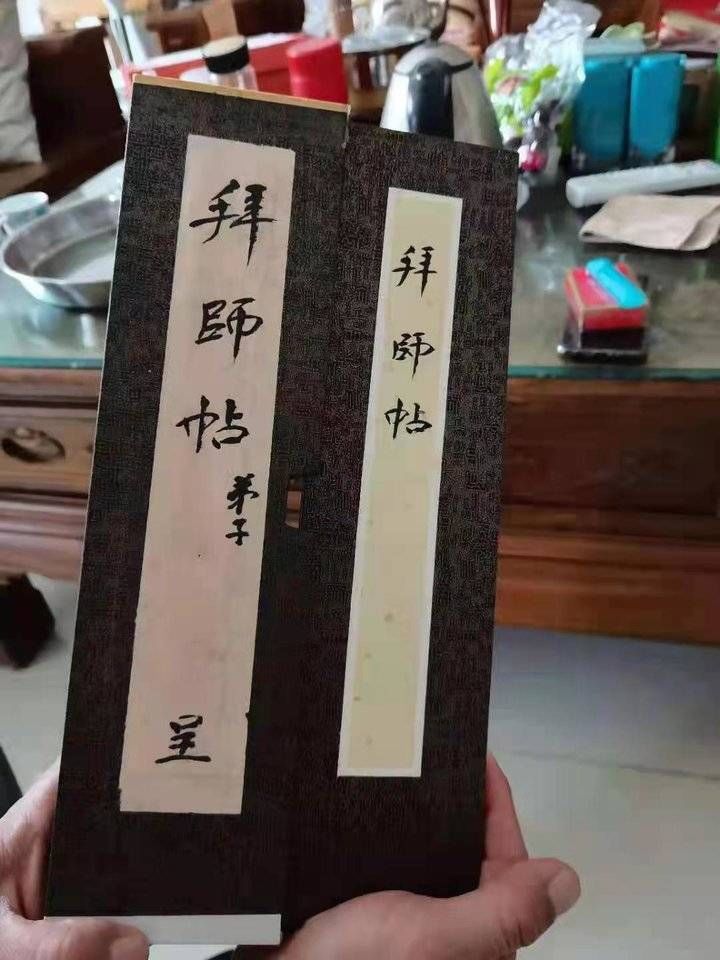 拜師帖
弟子
呈
拜師帖